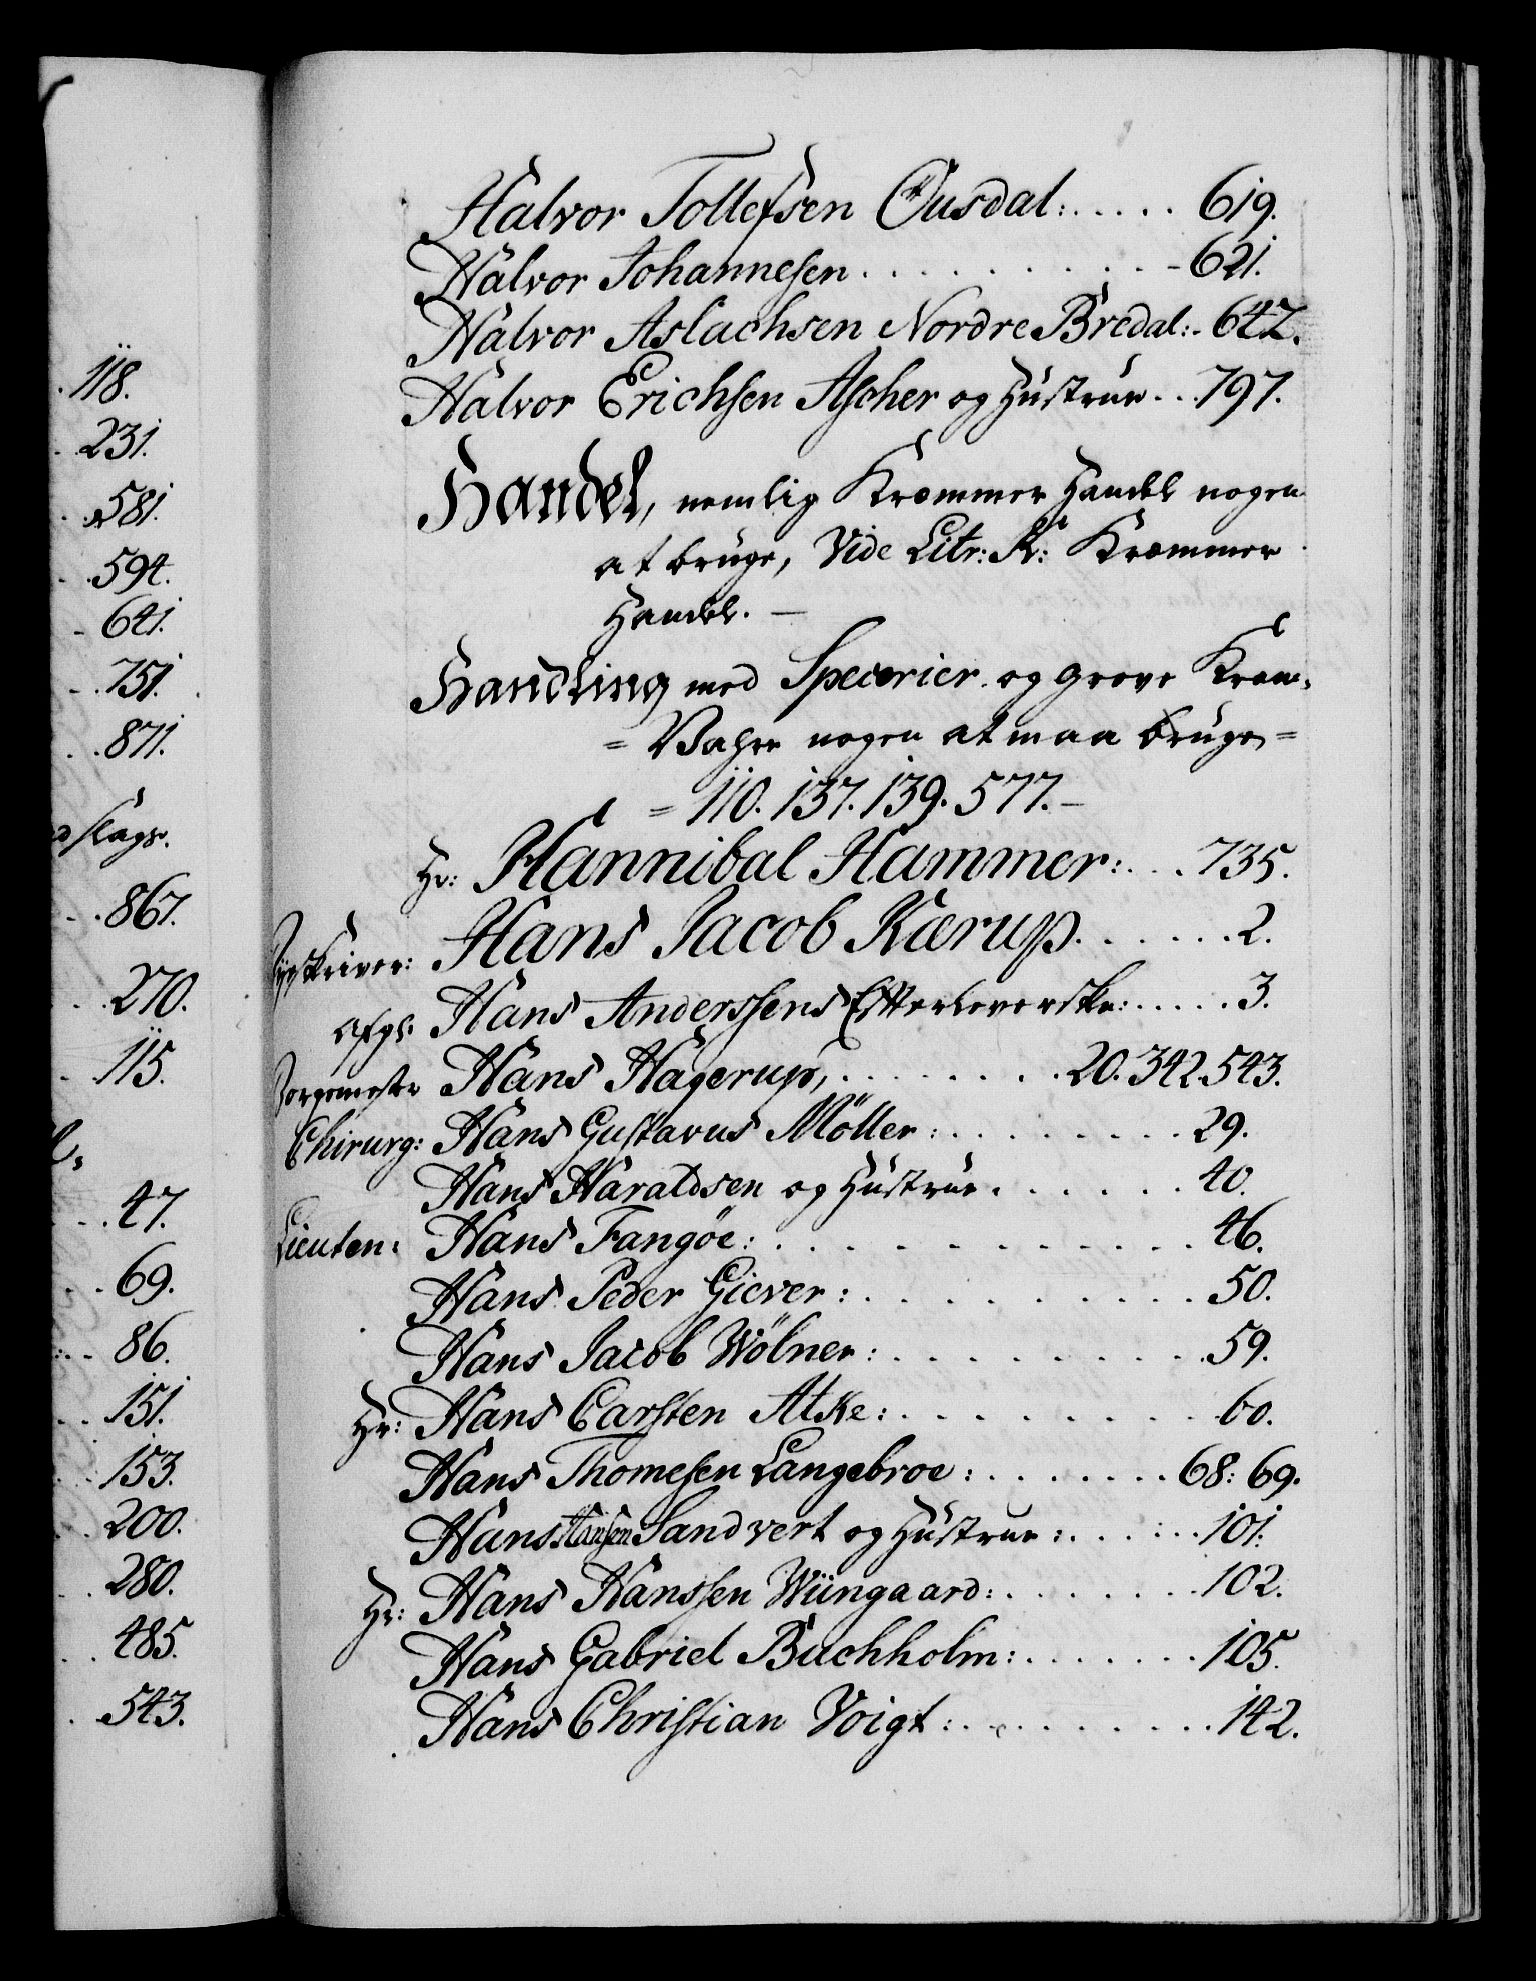 118.
231.
581.
594.
641.
751.
871.
867.
270.
115.
47.
69.
86.
151.
153.
200.
280.
485.
543.
Halvor Tollefsen Ousdal: . . . . . 619.
Halvor Johannesen . . . . . . . . . . 621.
Halvor Aslachsen Nordre Bredal: . 642.
Halvor Erichsen Ascher og Hustrue . . . 797.
Handel, nemlig Kræmmer Handel nogen
at bruge, Vide Litr: K: Kræmmer
Handel. —
Handling med Specerier og grove Kram-
= Vahre nogen at maa bruge =
= 110. 137. 139. 577. —
Hr: Hannibal Hammer: . . . 735.
Byeskriver: Hans Jacob Kærup . . . . . . 2.
Afgl: Hans Anderssens Efterleverske: . . . . . 3.
Borgemester Hans Hagerup, . . . . . . . . 20. 342. 543.
Chirurg: Hans Gustavus Möller: . . . . . . . . 29.
Hans Haraldsen og Hustrue . . . . . . 40.
Lieuten: Hans Fangøe: . . . . . . . . . . . . 46.
Hans Peder Giever: . . . . . . . . . . 50.
Hans Jacob Wölner: . . . . . . . . . . 59.
Hr: Hans Carsten Atke: . . . . . . . . . 60.
Hans Thomesen Langebroe: . . . . . . . 68: 69.
Hans Hansen Sandvert og Hustrue: . . . . . . 101.
Hr: Hans Hanssen Wiingaard: . . . . . . . 102.
Hans Gabriel Buchholm: . . . . . . . 105.
Hans Christian Voigt: . . . . . . . . . 142.